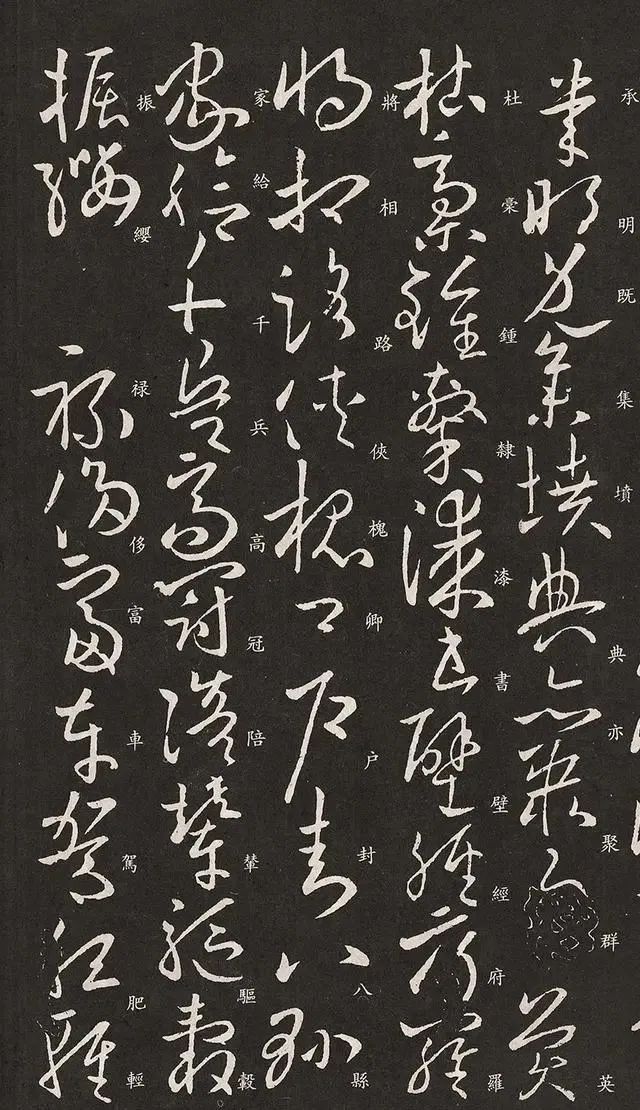 承明既集墳典亦聚群英
杜槀鍾隸漆書壁經府羅
將相路俠槐卿户封八縣
家給千兵高冠陪輦驅轂
振纓禄侈富車駕肥輕